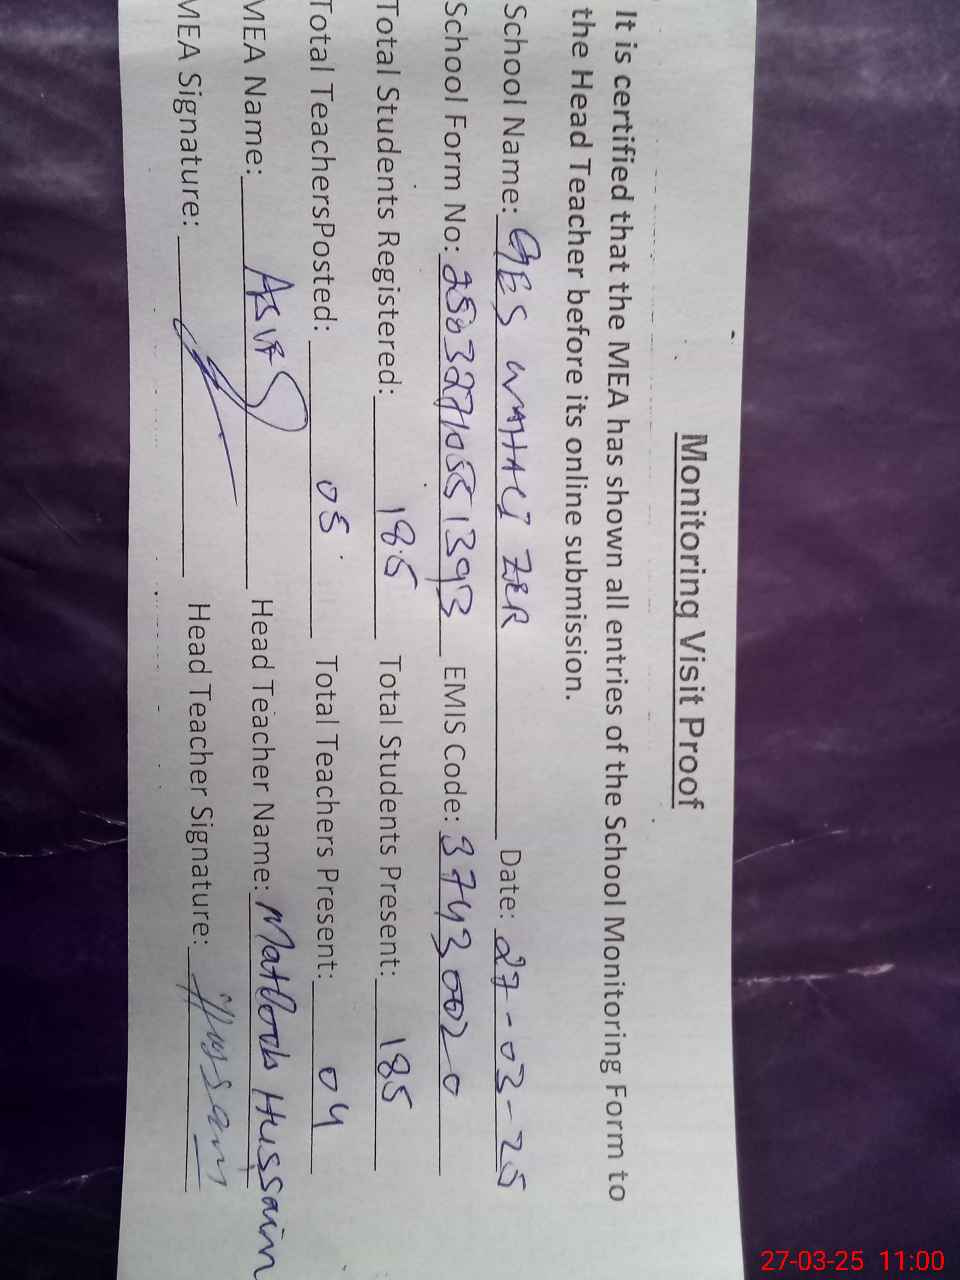 Monitoring Visit Proof
It is certified that the MEA has shown all entries of the School Monitoring Form to
the Head Teacher before its online submission.
School Name: GES WAHACI ZER Date: 27-03-25
School Form No: 2503271055 1393 EMIS Code: 37430020
Total Students Registered: 185 Total Students Present: 185
Total TeachersPosted: 05 Total Teachers Present: 04
MEA Name: Head Teacher Name: Matloob Hussain
MEA Signature: Head Teacher Signature: Hussain
27-03-25 11:00